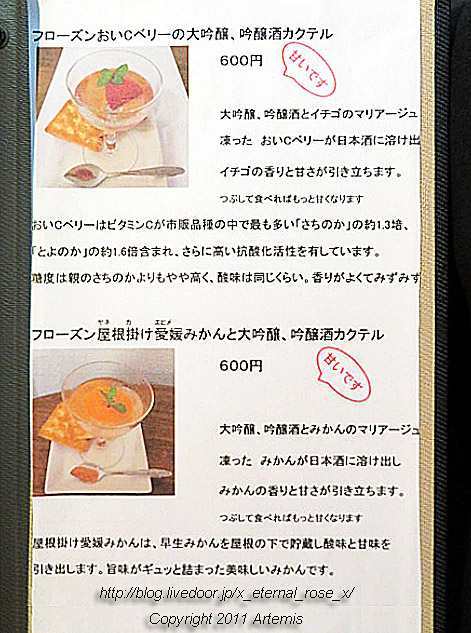 フローズンおいCベリーの大吟醸、吟醸酒カクテル
600円
甘いです
大吟醸、吟醸酒とイチゴのマリアージュ
凍った おいCベリーが日本酒に溶け出
イチゴの香りと甘さが引き立ちます。
つぶして食べればもっと甘くなります
おいCベリーはビタミンCが市販品種の中で最も多い「さちのか」の約1.3培、
「とよのか」の約1.6倍含まれ、さらに高い抗酸化活性を有しています。
糖度は親のさちのかよりもやや高く、酸味は同じくらい。香りがよくてみずみず
ヤネ カ エヒメ
フローズン屋根掛け愛媛みかんと大吟醸、吟醸酒カクテル
600円
甘いです
大吟醸、吟醸酒とみかんのマリアージュ
凍った みかんが日本酒に溶け出し
みかんの香りと甘さが引き立ちます。
つぶして食べればもっと甘くなります
屋根掛け愛媛みかんは、早生みかんを屋根の下で貯蔵し酸味と甘味を
引き出します。旨味がギュッと詰まった美味しいみかんです。
http://blog.livedoor.jp/x_eternal_rose_x/
Copyright 2011 Artemis